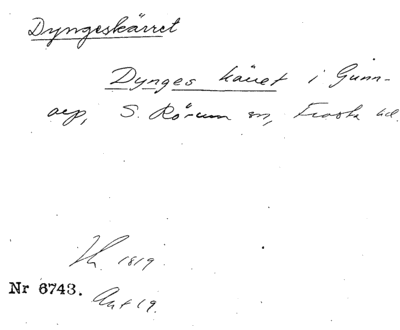 Dyngeskärret
Dynges käret i Gunn-
arp, S. Rörum sn, Frosta hd.
1819.
Nr 6743.